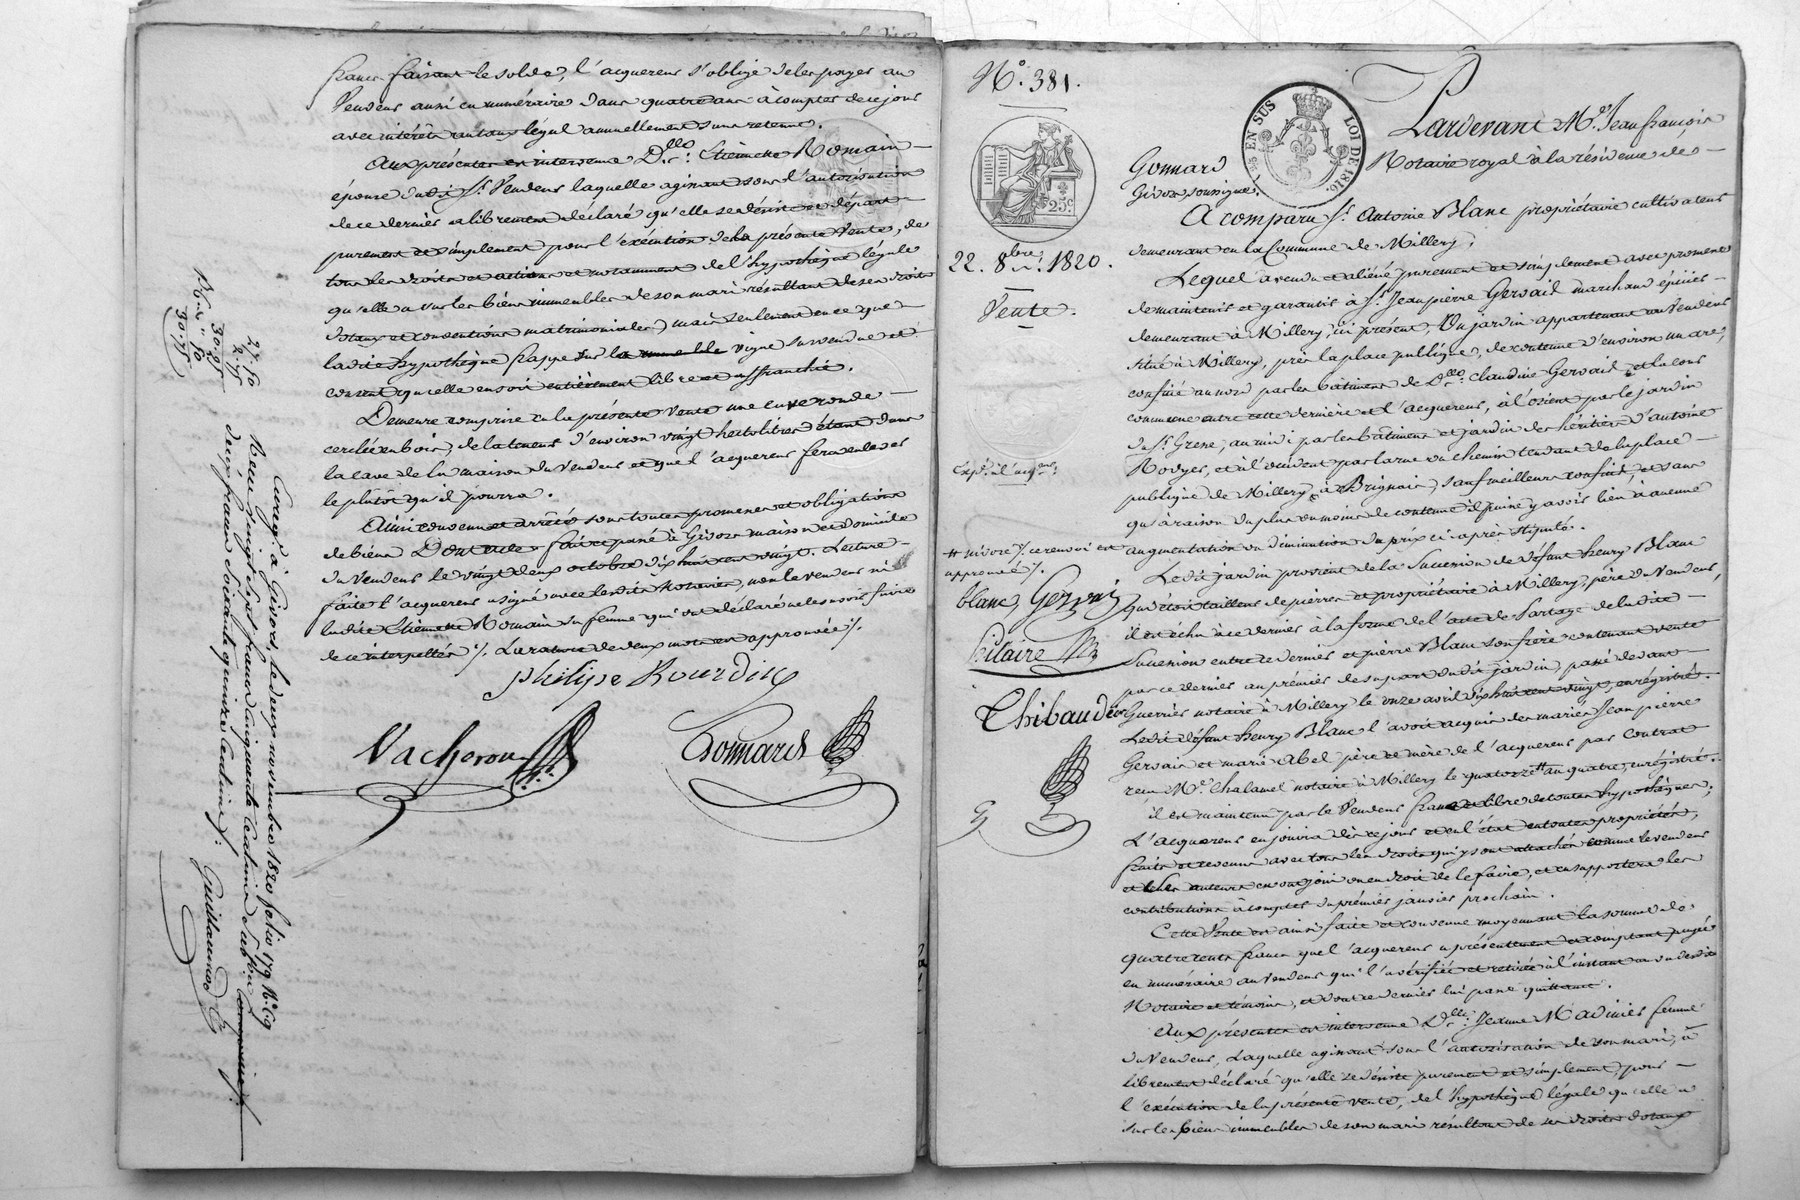 francs faisant le solde, l'acquereur s'oblige de les payer au
Vendeur aussi en numéraire dans quatre ans à compter de ce jour
avec intérêts au taux légal annuellement sans retenue.
Aux présentes est intervenue D.elle Etiennette Romain
épouse dudit S.r Vendeur laquelle agissant sous l'autorisation
de ce dernier a librement déclaré qu'elle se désiste et départ
purement et simplement pour l'exécution de la présente Vente, de
tous les droits et actions et notamment de l'hypothèque légale
qu'elle a sur les biens immeubles de son mari résultant de ses droits
dotaux et conventions matrimoniales, mais seulement en ce que
ladite hypothèque frappe sur la vigne susvendue et
consent qu'elle en soit entièrement libre et affranchie.
Demeure comprise en la présente vente une cuve ronde
cerclée en bois, de la teneur d'environ vingt hectolitres étant dans
la cave de la maison du Vendeur et que l'acquereur fera enlever
le plutôt qu'il pourra.
Ainsi convenu et arrêté sous toutes promesses et obligations
de biens Dont acte fait et passé à Givors maison et domicile
du Vendeur le vingt deux octobre dix huit cent vingt. Lecture
faite l'acquereur a signé avec lesdits Notaires, non le vendeur ni
ladite Etiennette Romain sa femme qui ont déclaré ne le savoir faire
de ce interpellés ./. La rature de deux mots est approuvée ./.
philipe Bourdin
Vacheron Gonnard
27. 50
2. 75
30. 25
50
30. 75
Enregé à Givors, le deux novembre 1820 folio 179 N.o C. 9
Reçu vingt sept francs cinquante centimes et subvon
deux francs soixante quinze centimes ./. Guillermo
N.o 381.
25.c
1/5 EN SUS LOI DE 1816.
Pardevant M.e Jean françois
Gonnard Notaire royal à la résidence de
Givors soussigné,
A comparu S.r Antoine Blanc propriétaire cultivateur
22. 8bre 1820. demeurant en la Commune de Millery;
Lequel a vendu et aliéné purement et simplement avec promesse
Vente. de maintenir et garantir à S.r Jean pierre Gervais marchand épicier
demeurant à Millery, ici présent, Un jardin appartenant au Vendeur
situé à Millery, près la place publique, de contenue d'environ un are,
confiné au nord par les bâtimens de D.elle Claudine Gervais et la cour
commune entre cette dernière et l'acquereur, à l'orient par le jardin
du S.r Grene, au midi par les bâtimens et jardin des héritiers d'antoine
Expé à l'acqur. Royer, et à l'occident par la rue ou chemin tendant de la place
publique de Millery à Brignais, sauf meilleurs confins, et sans
qu'à raison du plus ou moins de contenue il puisse y avoir lieu à aucune
augmentation ou diminution du prix ci après stipulé.
# nivose ./. ce renvoi est
approuvé ./.
Ledit jardin provient de la Succession de défunt henry Blanc
blanc, Gervais qui étoit tailleur de pierres et propriétaire à Millery, père du Vendeur,
il est échu à ce dernier à la forme de l'acte de Partage de ladite
hilaire succession entre ce dernier et pierre Blanc son frère contenant vente
par ce dernier au premier de sa part dudit jardin, passé devant
Thibaudier Guerrier notaire à Millery le onze avril dix huit cent vingt, enregistré.
Ledit défunt henry Blanc l'avoit acquis des mariés Jean pierre
Gervais et marie abel père et mère de l'acquereur par Contrat
reçu M.e Chalamel notaire à Millery le quatorze # an quatre, enregistré.
G il est maintenu par le Vendeur franc et libre de toutes hypothèques;
L'acquereur en jouira dès ce jour et en l'état en toute propriété,
fruits et revenus avec tous les droits qui y sont attachés comme le vendeur
et ses auteurs en ont joui ou eu droit de le faire, et en supportera les
contributions à compter du premier janvier prochain.
Cette Vente est ainsi faite et convenue moyennant la somme de
quatre cents francs que l'acquereur a présentement et comptant payée
en numéraire au Vendeur qui l'a vérifiée et retirée à l'instant au vu desdits
Notaire et témoins, et dont ce dernier lui passe quittance.
Aux présentes est intervenue D.elle Jeanne Madinier femme
du Vendeur, Laquelle agissant sous l'autorisation de son mari, a
librement déclaré qu'elle se désiste purement et simplement, pour
l'exécution de la présente vente, de l'hypothèque légale qu'elle a
sur les biens immeubles de son mari résultant de ses droits dotaux